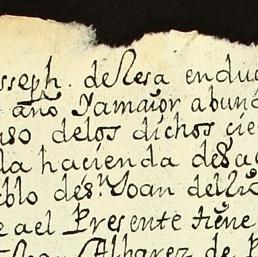 sseph. de Resa en duc
año Ya maior abund
uso de los dichos cie
la hacienda de sa
blo de sn Joan del Rio
e a el Presente tiene
Juan Alharez de P